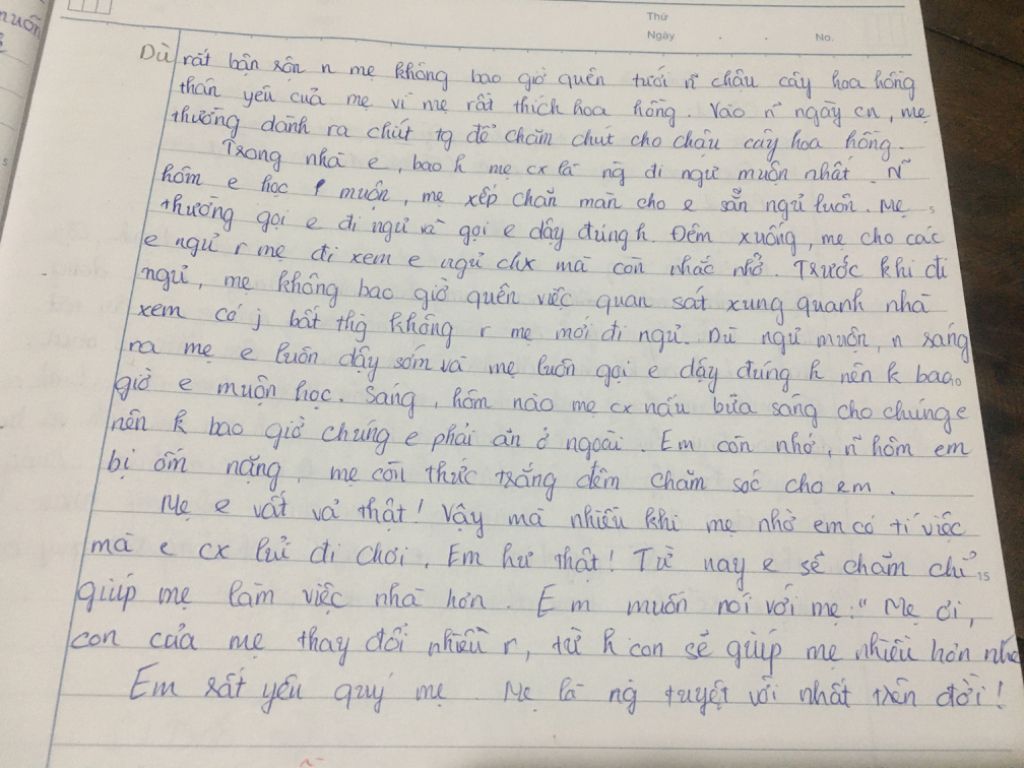 Thứ
Ngày . . No.
Dù rất bận rộn n mẹ không bao giờ quên tưới ñ chậu cây hoa hồng
thân yêu của mẹ vì mẹ rất thích hoa hồng. Vào ñ ngày cn, mẹ
thường dành ra chút tg để chăm chút cho chậu cây hoa hồng.
Trong nhà e, bao h mẹ cx là ng đi ngủ muộn nhất. Ñ
hôm e học muộn, mẹ xếp chăn màn cho e sẵn ngủ luôn. Mẹ
thường gọi e đi ngủ và gọi e dậy đúng h. Đêm xuống, mẹ cho các
e ngủ r mẹ đi xem e ngủ chx mà còn nhắc nhở. Trước khi đi
ngủ, mẹ không bao giờ quên việc quan sát xung quanh nhà
xem có j bất thg không r mẹ mới đi ngủ. Dù ngủ muộn, n sáng
ra mẹ e luôn dậy sớm và mẹ luôn gọi e dậy đúng h nên k bao
giờ e muộn học. Sáng, hôm nào mẹ cx nấu bữa sáng cho chúng e
nên k bao giờ chúng e phải ăn ở ngoài. Em còn nhớ, ñ hôm em
bị ốm nặng, mẹ còn thức trắng đêm chăm sóc cho em.
Mẹ e vất vả thật! Vậy mà nhiều khi mẹ nhờ em có tí việc
mà e cx lủi đi chơi. Em hư thật! Từ nay e sẽ chăm chỉ 15
giúp mẹ làm việc nhà hơn. Em muốn nói với mẹ: "Mẹ ơi,
con của mẹ thay đổi nhiều r, từ h con sẽ giúp mẹ nhiều hơn nhé
Em rất yêu quý mẹ. Mẹ là ng tuyệt vời nhất trên đời!